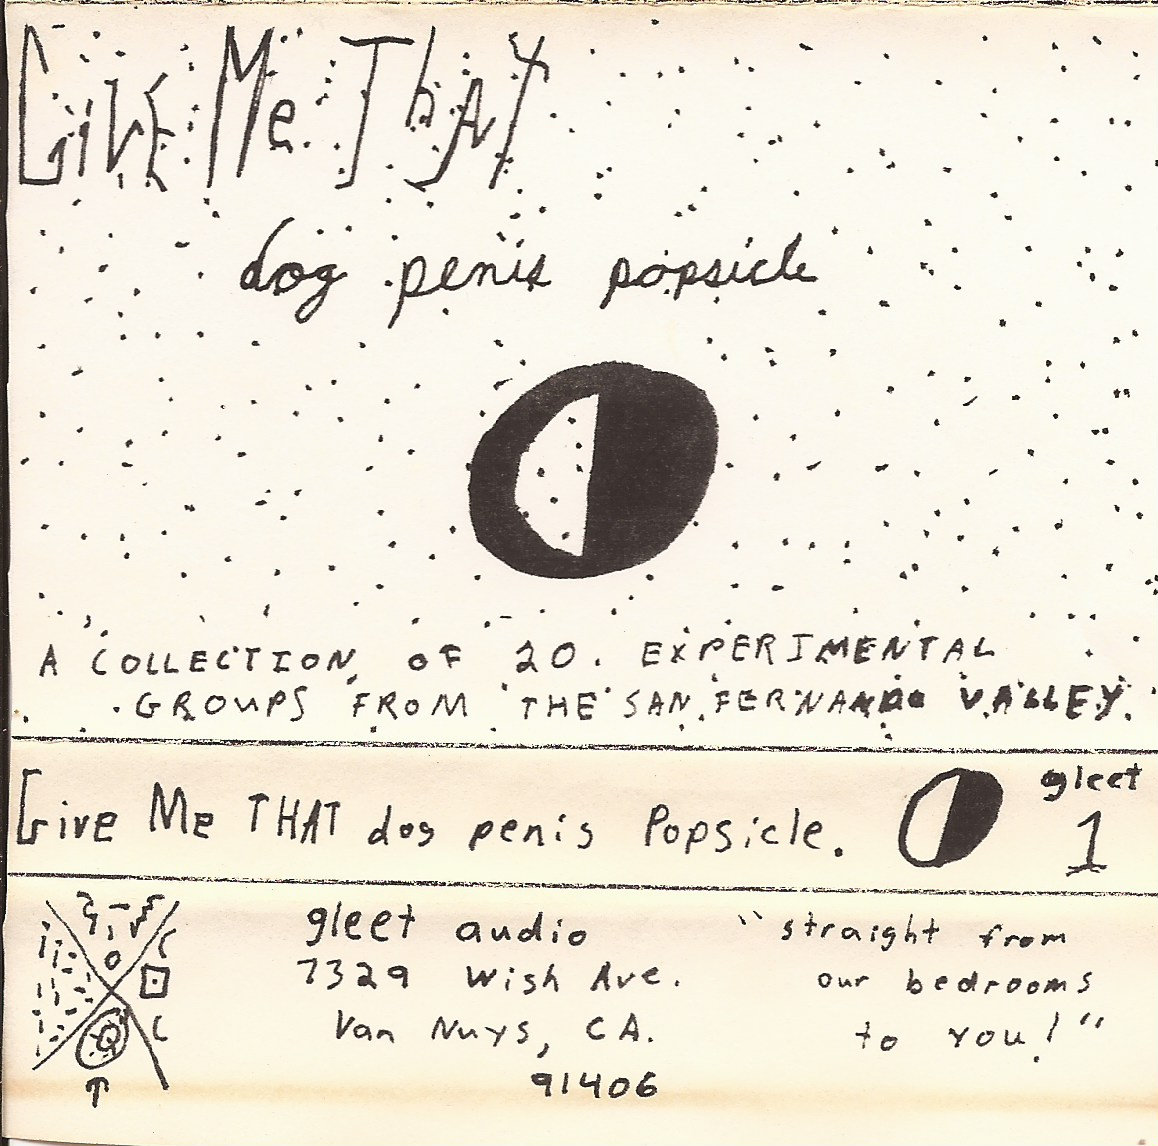 GivE Me ThAT
dog penis popsicle
A COLLECTION OF 20. EXPERIMENTAL
GROUPS FROM THE SAN FERNANDO VALLEY.
Give Me THAT dog penis Popsicle.
gleet
1
gleet audio
7329 Wish Ave.
Van Nuys, CA.
91406
"straight from
our bedrooms
to you!"